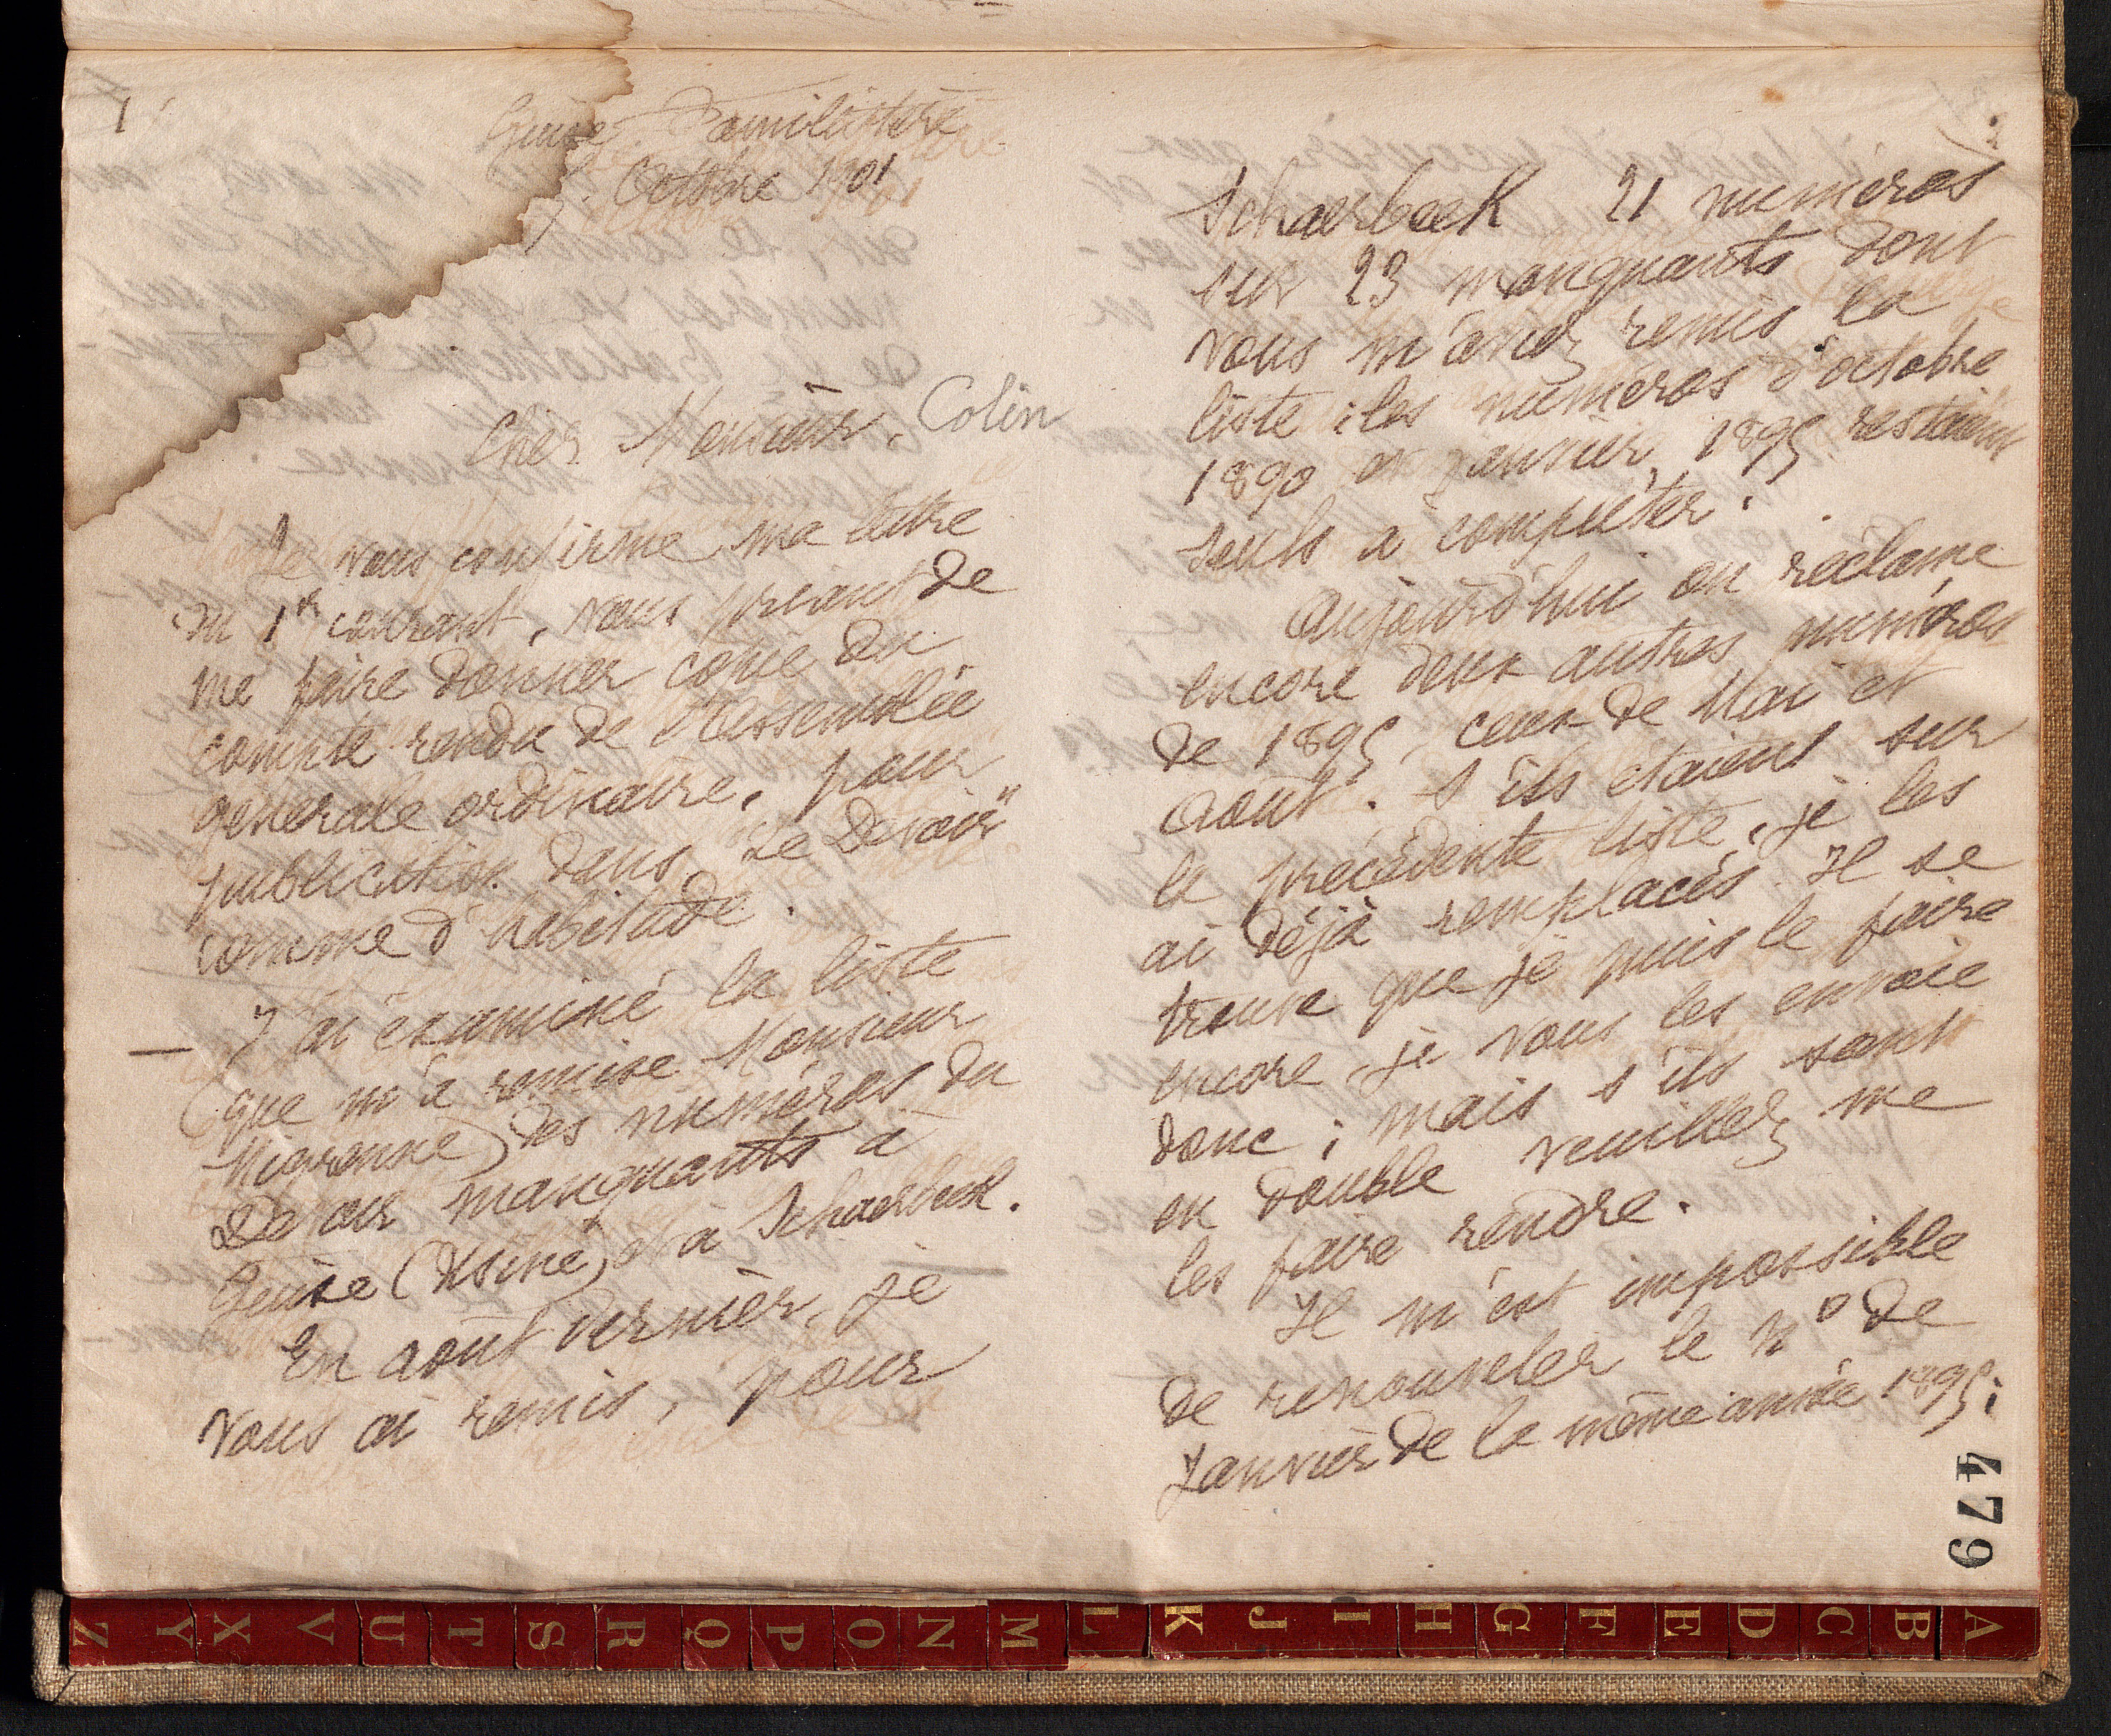 1
Guise Familistère
7 Octobre 1901
Cher Monsieur, Colin
Je vous confirme ma lettre
du 1er courant, vous priant de
me faire donner copie du
compte rendu de l'assemblée
générale ordinaire, pour
publication dans "Le Devoir"
comme d'habitude.
— J'ai examiné la liste
(que m'a remise Monsieur
Migrenne) des numéros du
Devoir manquants à
Guise (Usine) et à Schaerbeek.
En août dernier, je
vous ai remis, pour
2
Schaerbeek 21 numéros
sur 23 manquants dont
vous m'aviez remis la
liste ; les numéros d'octobre
1890 et janvier 1895 restaient
seuls à compléter.
Aujourd'hui on réclame
encore deux autres numéros
de 1895, ceux de Mai et
Août. S'ils étaient sur
la précédente liste, je les
ai déjà remplacés. Il se
trouve que je puis le faire
encore, je vous les envoie
donc ; mais s'ils sont
en double veuillez me
les faire rendre.
Il m'est impossible
de renouveler le No de
Janvier de la même année 1895 ;
479
Z Y X V U T S R Q P O N M L K J I H G F E D C B A